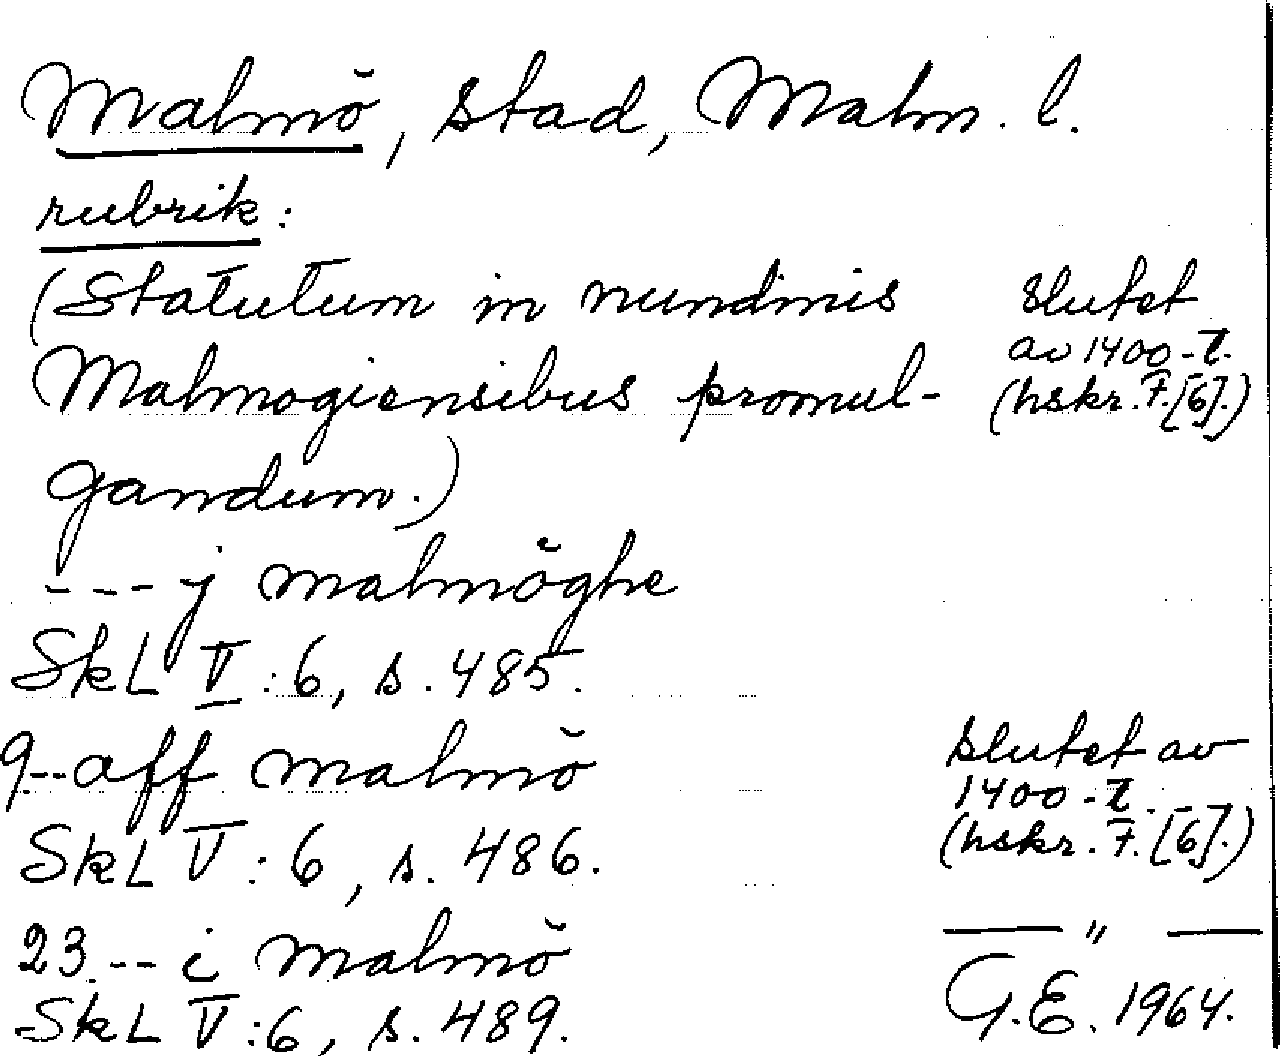 Malmö, stad, Malm. l.
rubrik:
(Statutum in nundinis
Malmogiensibus promul-
gandum.)
slutet
av 1400-t.
(hskr. F.[6].)
--- j malmöghe
SkL V:6, s. 485.
9.--aff malmö
SkL V:6, s. 486.
slutet av
1400-t.
(hskr. F. [6].)
23.-- i malmö
SkL V:6, s. 489.
— " —
G.E. 1964.